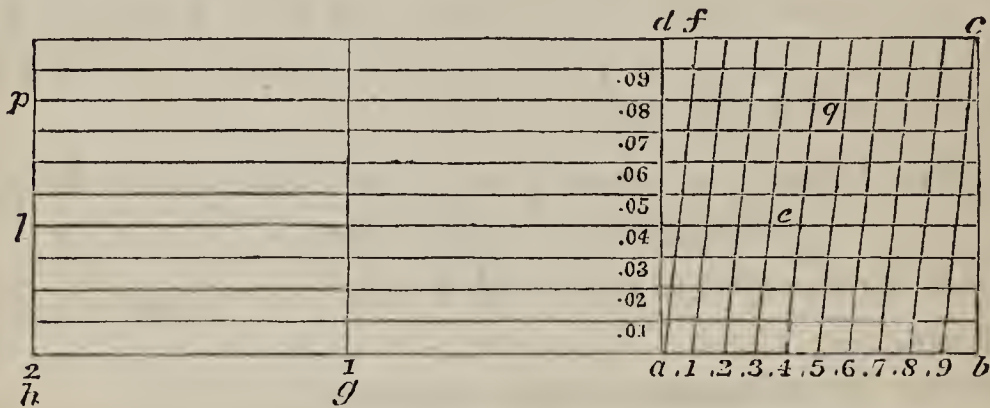 d f c
.09
p .08 q
.07
.06
.05
l .04 e
.03
.02
.01
2 1 a .1 .2 .3 .4 .5 .6 .7 .8 .9 b
h g